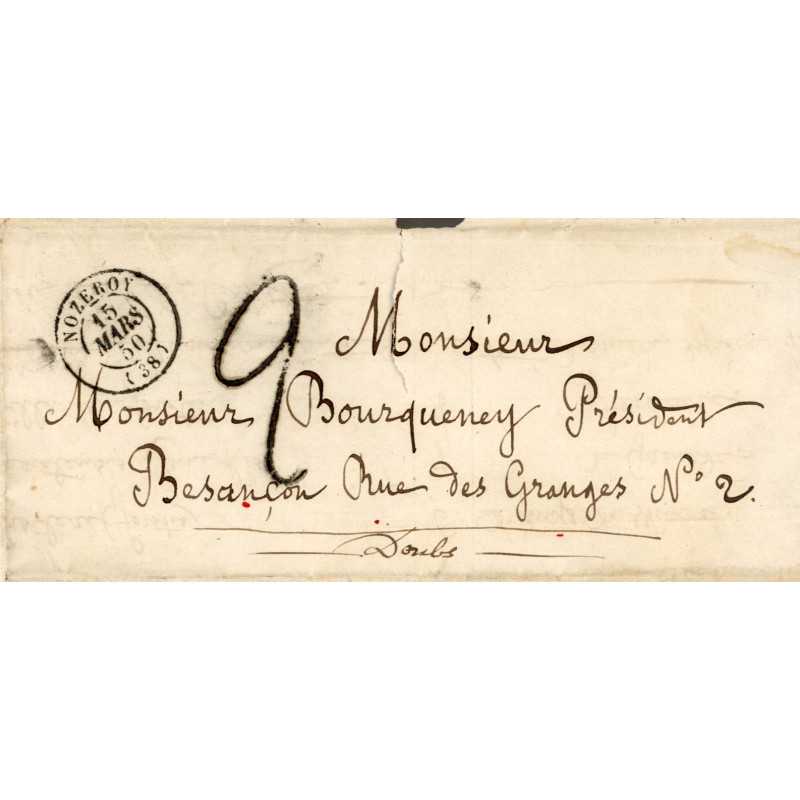 NOZEROY
15
MARS
50
(38)
2
Monsieur
Monsieur Bourqueney Président
Besançon Rue des Granges N° 2.
Doubs